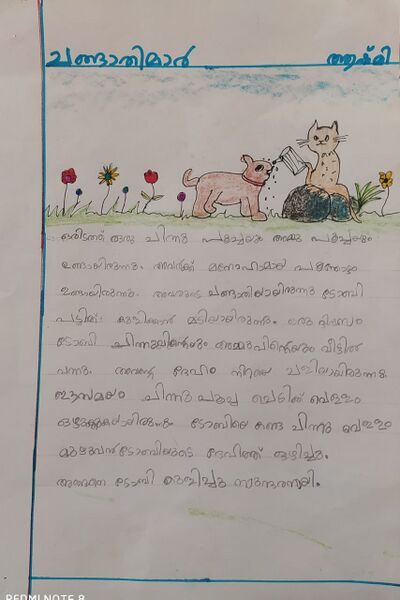 ചങ്ങാതിമാർ ആഷ്മി
ഒരിടത്ത് ഒരു ചിന്നു പൂച്ചയും അമ്മു പൂച്ചയും
ഉണ്ടായിരുന്നു. അവർക്ക് മനോഹരമായ പൂന്തോട്ടം
ഉണ്ടായിരുന്നു. അവരുടെ ചങ്ങാതിയായിരുന്നു ടോബി
പട്ടിക്ക് കുളിക്കാൻ മടിയായിരുന്നു. ഒരു ദിവസം
ടോബി ചിന്നുവിന്റെയും അമ്മുവിന്റെയും വീട്ടിൽ
വന്നു. അവന്റെ ദേഹം നിറയെ ചളിയായിരുന്നു.
ഈസമയം ചിന്നു പൂച്ച ചെടിക്ക് വെള്ളം
ഒഴുക്കുകയായിരുന്നു. ടോബിയെ കണ്ട ചിന്നു വെള്ളം
മുഴുവൻ ടോബിയുടെ ദേഹത്ത് ഒഴിച്ചു.
അങ്ങനെ ടോബി കുളിച്ചു സുന്ദരനായി.
REDMI NOTE 8